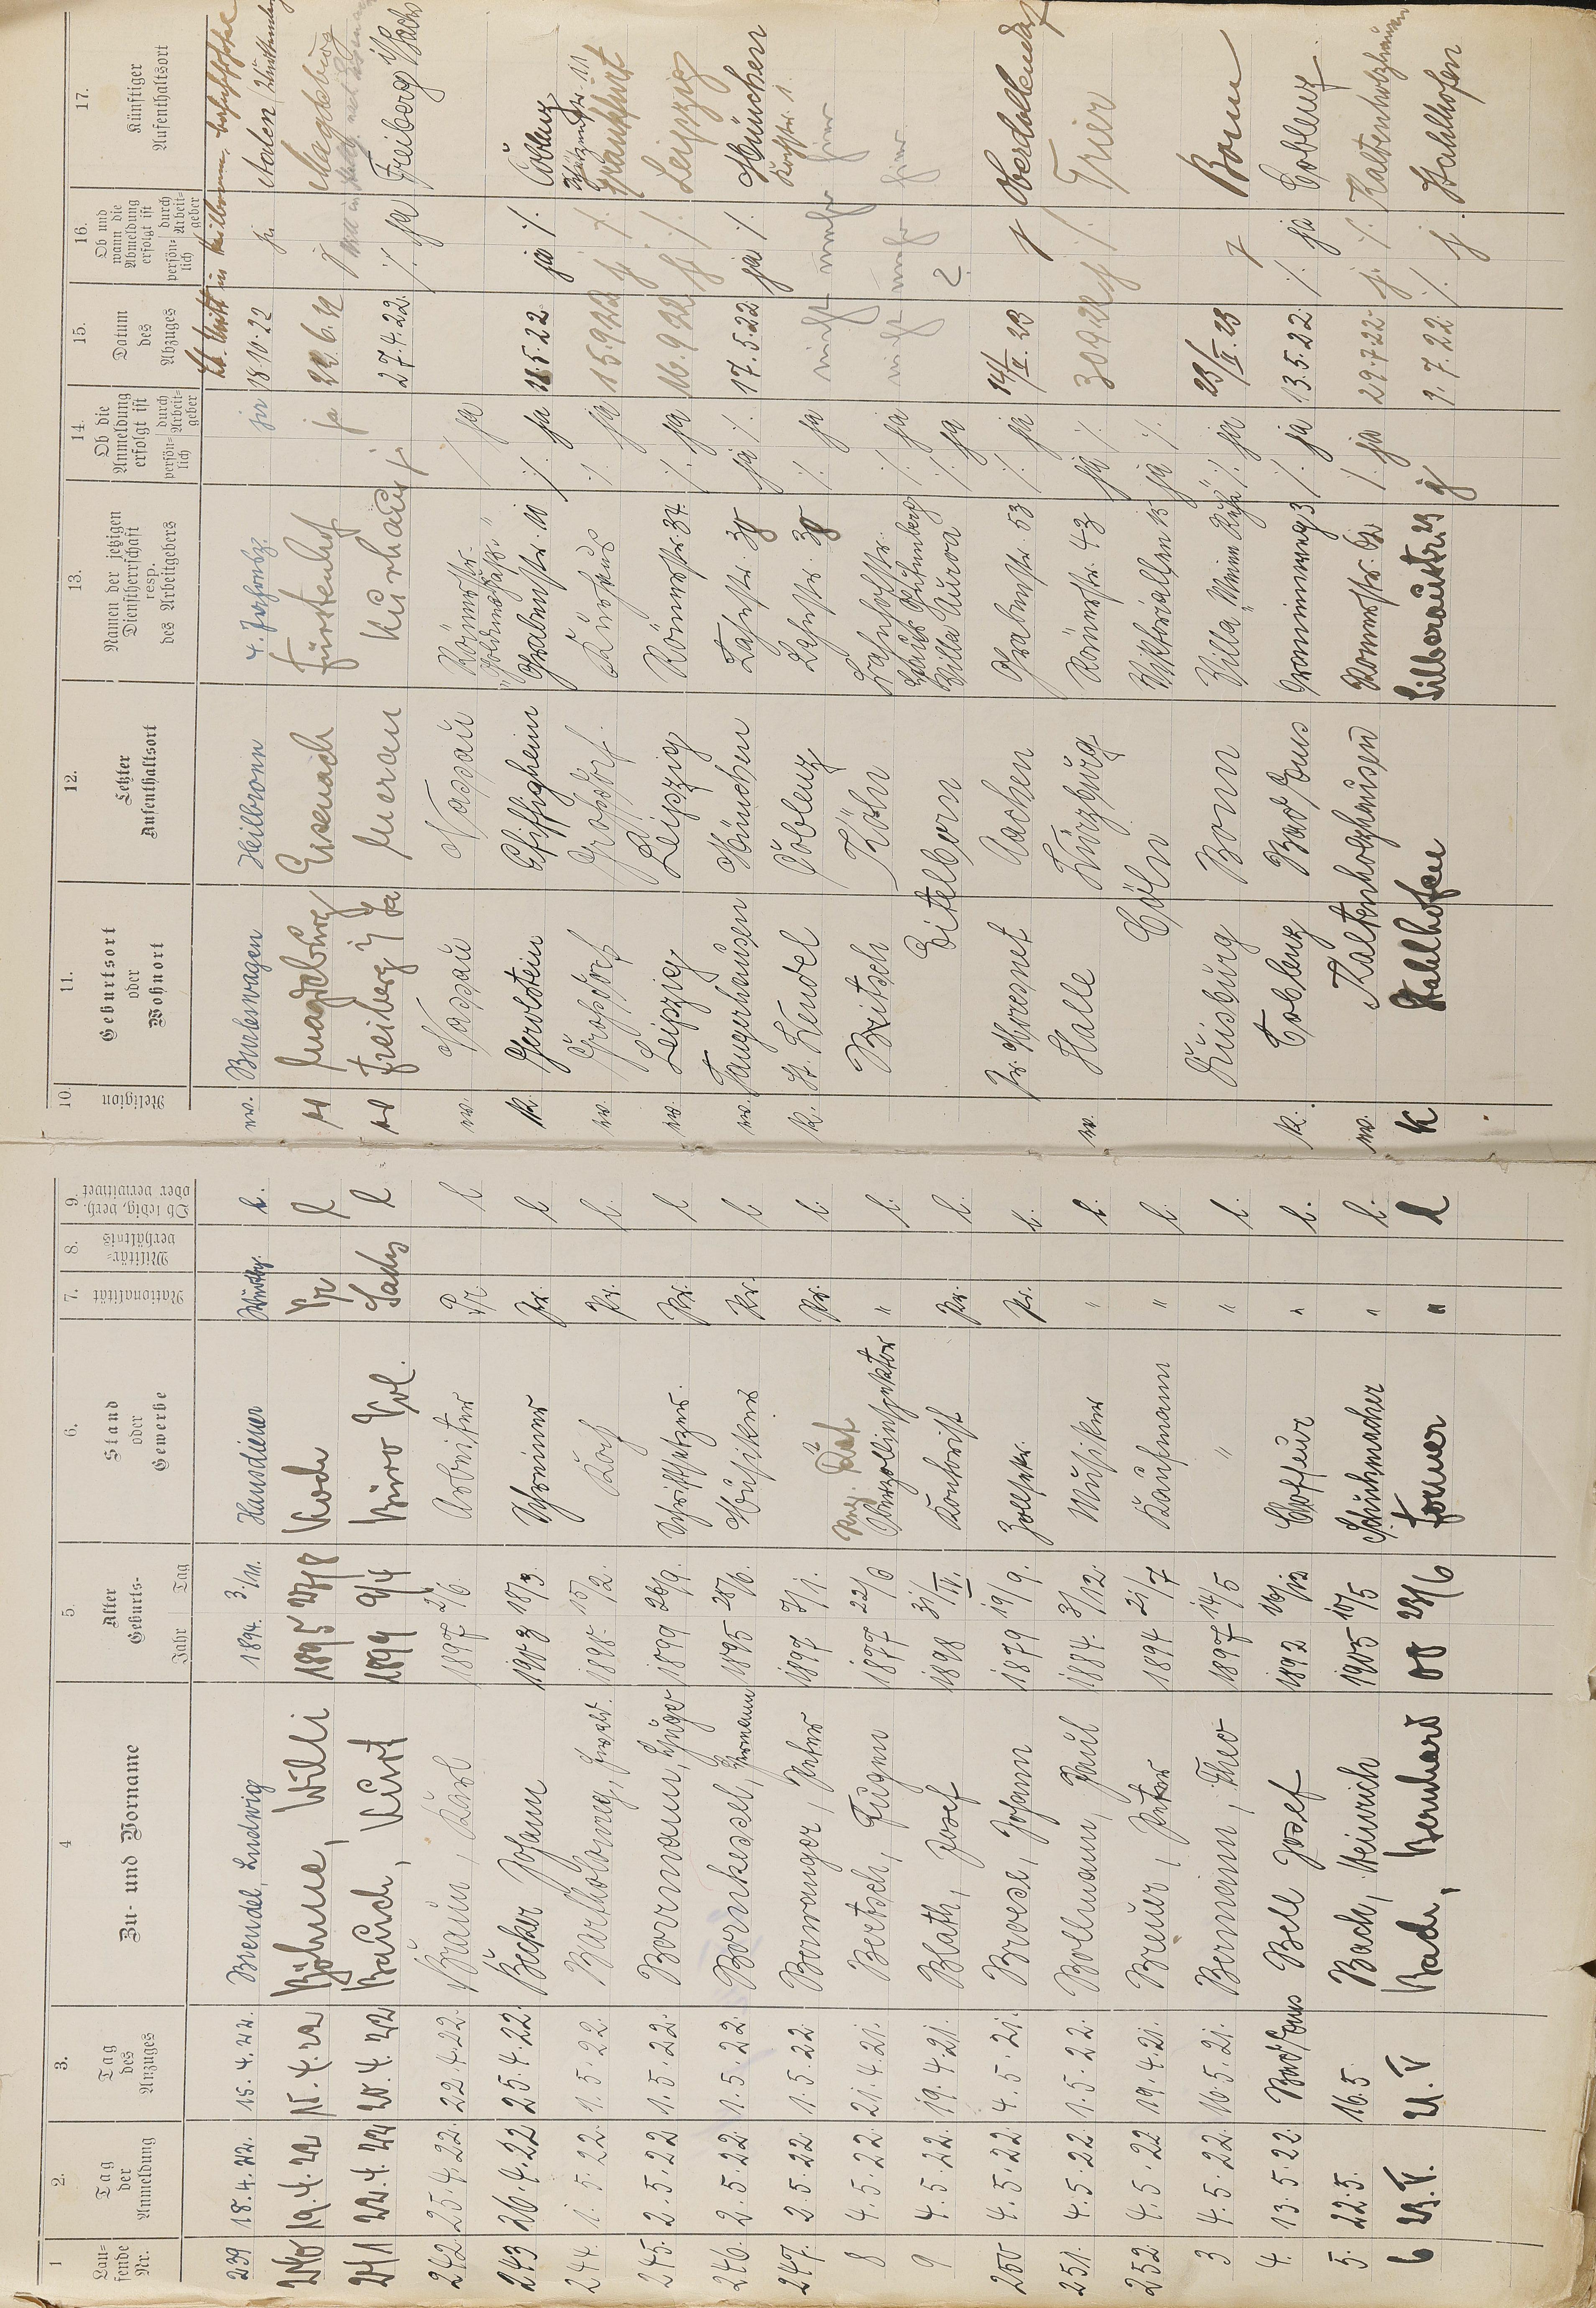 1 2. 3. 4 5. 6. 7. 8. 9. 10 11. 12. 13. 14. 15. 16. 17.
Lau-fende Nr. Tag der Anmeldung Tag des Anzuges Zu- und Vorname Alter Geburts- Jahr Tag Stand oder Gewerbe Nationalität Militär-verhältnis Ob ledig, verh. oder verwitwet Religion Geburtsort oder Wohnort Letzter Aufenthaltsort Namen der jetzigen Dienstherrschaft resp. des Arbeitgebers Ob die Anmeldung erfolgt ist persön-lich durch Arbeit-geber Datum des Abzuges Ob und wann die Abmeldung erfolgt ist persön-lich durch Arbeit-geber Künftiger Aufenthaltsort
239 18.4.22. 15.4.22. Brendel, Ludwig 1894. 3./11. Hausdiener l. ev. Heilbronn 4. Jahresz. 18.10.22 Aalen
240 19.4.22 15.4.22 Böhme, Willi 1895 27/8 Koch Pr l ev Magdeburg Eisenach Fürstenhof ja 22.6.22 j Magdeburg
241 22.4.22 20.4.22 Bauch, Kurt 1899 9/4 Büro Vol. Sachs l ev Freiberg i/Sa Meran Kurhaus j. 27.4.22. /. ja Freiberg i/Sachs
242. 25.4.22. 22.4.22. Braun, Karl 1897 2/6. Arbeiter Pr. l ev. Nassau Nassau Römerstr. /. ja
243 26.4.22 25.4.22. Becker Johann 1903 18/3. Schreiner Pr. l K. Gerolstein Pfiffigheim Grabenstr. 10 /. ja 21.5.22. ja /. Coblenz
244. 1.5.22. 1.5.22. Bartholomey, Ewald. 1898. 15/2. Koch Pr. l. ev. Kurhaus /. ja 15.9.22 j /. Frankfurt
245. 2.5.22 1.5.22. Borrmann, Hugo 1899 28/9. Schriftsetzer. Pr. l ev. Leipzig Leipzig Römerstr. 37. /. ja 16.9.22 j /. Leipzig
246. 2.5.22. 1.5.22. Bornkessel, Hermann 1895 28/6. Musiker Pr. l ev. Sangerhausen München Lahnstr. 30 ja /. 17.5.22. ja /. München
247. 2.5.22 1.5.22. Bermanger, Peter 1897 7/1. Pr. l. K. St. Wendel Coblenz Lahnstr. 30 /. ja nicht mehr hier
8 4.5.22. 21.4.21. Bertsch, Eugen 1877 22/6 Reg. Rat Oberzollinspektor " l. Britsch Köln Bahnhofstr. Haus Gutenberg /. ja nicht mehr hier
9 4.5.22. 19.4.21. Blath, Josef 1898 31/IV. Kontorist Pr. l. Eitelborn Villa Aurora /. ja ?
250 4.5.22. 4.5.21. Broese, Johann 1879 19/9. Zollsekr. Pr. l. Pr. Moresnet Aachen Grabenstr. 53 /. ja 14/II.23 Oberdollendorf
251. 4.5.22. 1.5.22. Bollmann, Paul 1884. 3/12. Musiker " l. ev. Halle Würzburg Römerstr. 43 ja /. 30.9.22 j /. Trier
252. 4.5.22 19.4.21. Breuer, Peter 1894 21/7 Kaufmann " l. Cöln Viktoriaallee 15 ja /.
3 4.5.22. 16.5.21. Bermann, Theo 1897 14/5 " " l. Duisburg Bonn Villa "Meine Ruhe" /. ja 23/II.23 Bonn
4. 13.5.22. Bad Ems Bell Josef 1892 Choffeur " l. K. Coblenz Bad Ems /. ja 13.5.22. /. ja Coblenz
5. 22.5. 16.5. Bach, Heinrich 1905 15/5 Schuhmacher " l. ev. Kaltenholzhausen Römerstr. /. ja 29.7.22. j. /. Kaltenholzhausen
6 23.V. 21.V Bach, Bernhard 00 23/6 Former " l K Stahlhofen Stahlhofen Silberaustr. 23 j 2.7.22. /. j. Stahlhofen